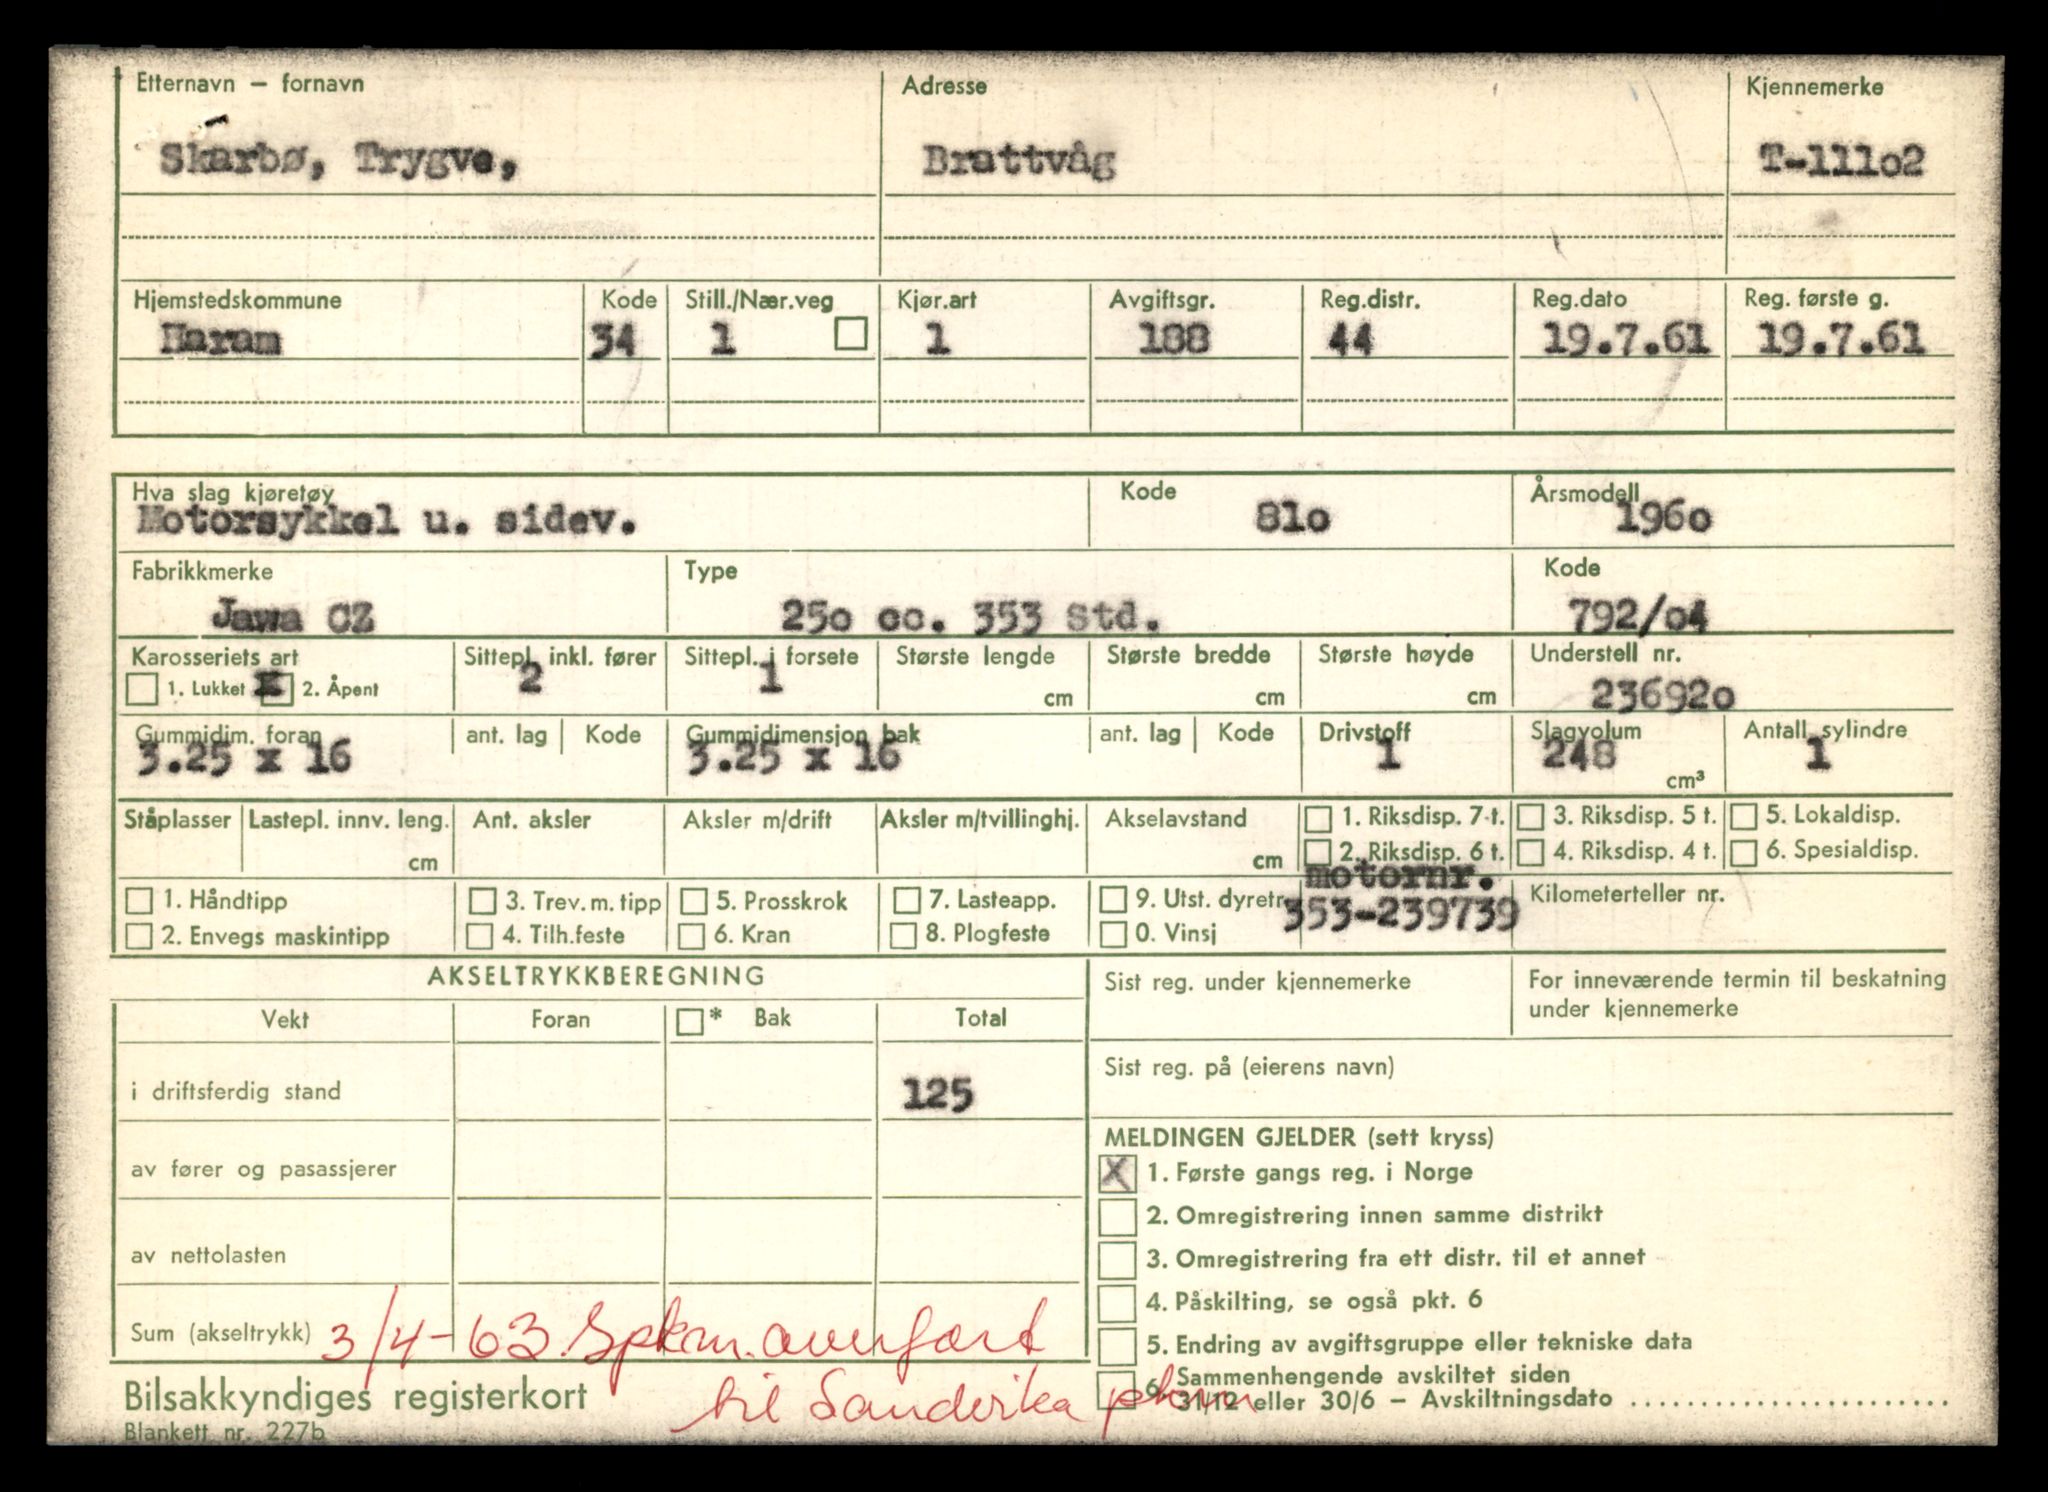 Etternavn – fornavn Adresse Kjennemerke
Skarbø, Trygve, Brattvåg T-111o2
Hjemstedskommune Kode Still./Nær.veg Kjør.art Avgiftsgr. Reg.distr. Reg.dato Reg. første g.
Haram 34 1 1 188 44 19.7.61 19.7.61
Hva slag kjøretøy Kode Årsmodell
Motorsykkel u. sidev. 81o 196o
Fabrikkmerke Type Kode
Jawa CZ 25o cc. 353 Std. 792/o4
Karosseriets art Sittepl. inkl. fører Sittepl. i forsete Største lengde Største bredde Største høyde Understell nr.
1. Lukket x 2. Åpent 2 1 cm cm cm 23692o
Gummidim. foran ant. lag Kode Gummidimensjon bak ant. lag Kode Drivstoff Slagvolum Antall sylindre
3.25 x 16 3.25 x 16 1 248 cm³ 1
Ståplasser Lastepl. innv. leng. Ant. aksler Aksler m/drift Aksler m/tvillinghj. Akselavstand 1. Riksdisp. 7 t. 3. Riksdisp. 5 t. 5. Lokaldisp.
cm cm 2. Riksdisp. 6 t. 4. Riksdisp. 4 t. 6. Spesialdisp.
motornr.
1. Håndtipp 3. Trev. m. tipp 5. Prosskrok 7. Lasteapp. 9. Utst. dyretr. 353-239739 Kilometerteller nr.
2. Envegs maskintipp 4. Tilh.feste 6. Kran 8. Plogfeste 0. Vinsj
AKSELTRYKKBEREGNING Sist reg. under kjennemerke For inneværende termin til beskatning
under kjennemerke
Vekt Foran * Bak Total
Sist reg. på (eierens navn)
i driftsferdig stand 125
MELDINGEN GJELDER (sett kryss)
av fører og pasassjerer X 1. Første gangs reg. i Norge
2. Omregistrering innen samme distrikt
av nettolasten 3. Omregistrering fra ett distr. til et annet
4. Påskilting, se også pkt. 6
Sum (akseltrykk) 3/4-63 Spkm. overført 5. Endring av avgiftsgruppe eller tekniske data
til Sanderika 6. Sammenhengende avskiltet siden
31/12 eller 30/6 – Avskiltningsdato
Bilsakkyndiges registerkort
Blankett nr. 227b